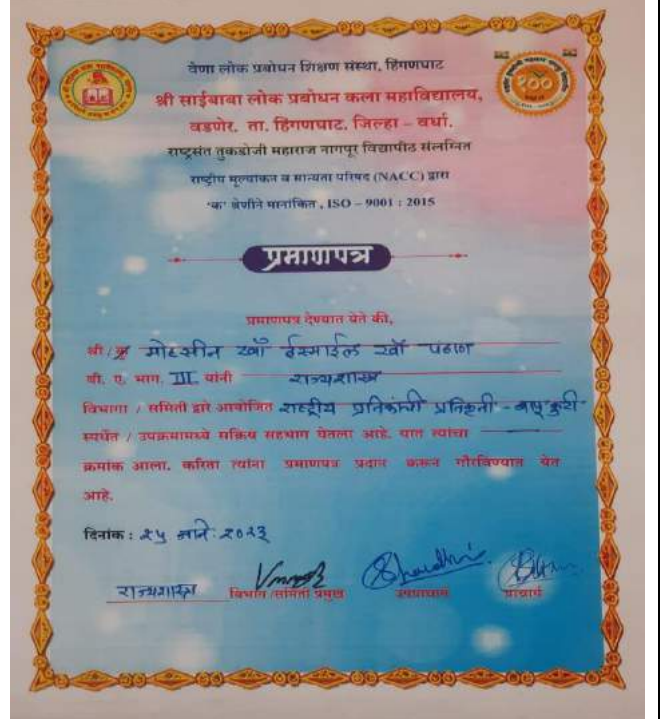 वेणा लोक प्रबोधन शिक्षण संस्था, हिंगणघाट
श्री साईबाबा लोक प्रबोधन कला महाविद्यालय,
वडणेर. ता. हिंगणघाट. जिल्हा – वर्धा.
राष्ट्रसंत तुकडोजी महाराज नागपूर विद्यापीठ संलग्नित
राष्ट्रीय मूल्यांकन व मान्यता परिषद (NACC) द्वारा
'क' श्रेणीने मानांकित , ISO – 9001 : 2015
१००
प्रमाणपत्र
प्रमाणपत्र देण्यात येते की,
श्री / कु मोहसीन खाँ ईस्माईल खाँ पठाण
बी. ए. भाग. III यांनी राज्यशास्त्र
विभागा / समिती द्वारे आयोजित राष्ट्रीय प्रतिकांची प्रतिकृती - बापू कुटी
स्पर्धेत / उपक्रमामध्ये सक्रिय सहभाग घेतला आहे. यात त्यांचा
क्रमांक आला. करिता त्यांना प्रमाणपत्र प्रदान करून गौरविण्यात येत
आहे.
दिनांक : २५ जाने. २०२३
राज्यशास्त्र विभाग /समिती प्रमुख उपप्राचार्य प्राचार्य